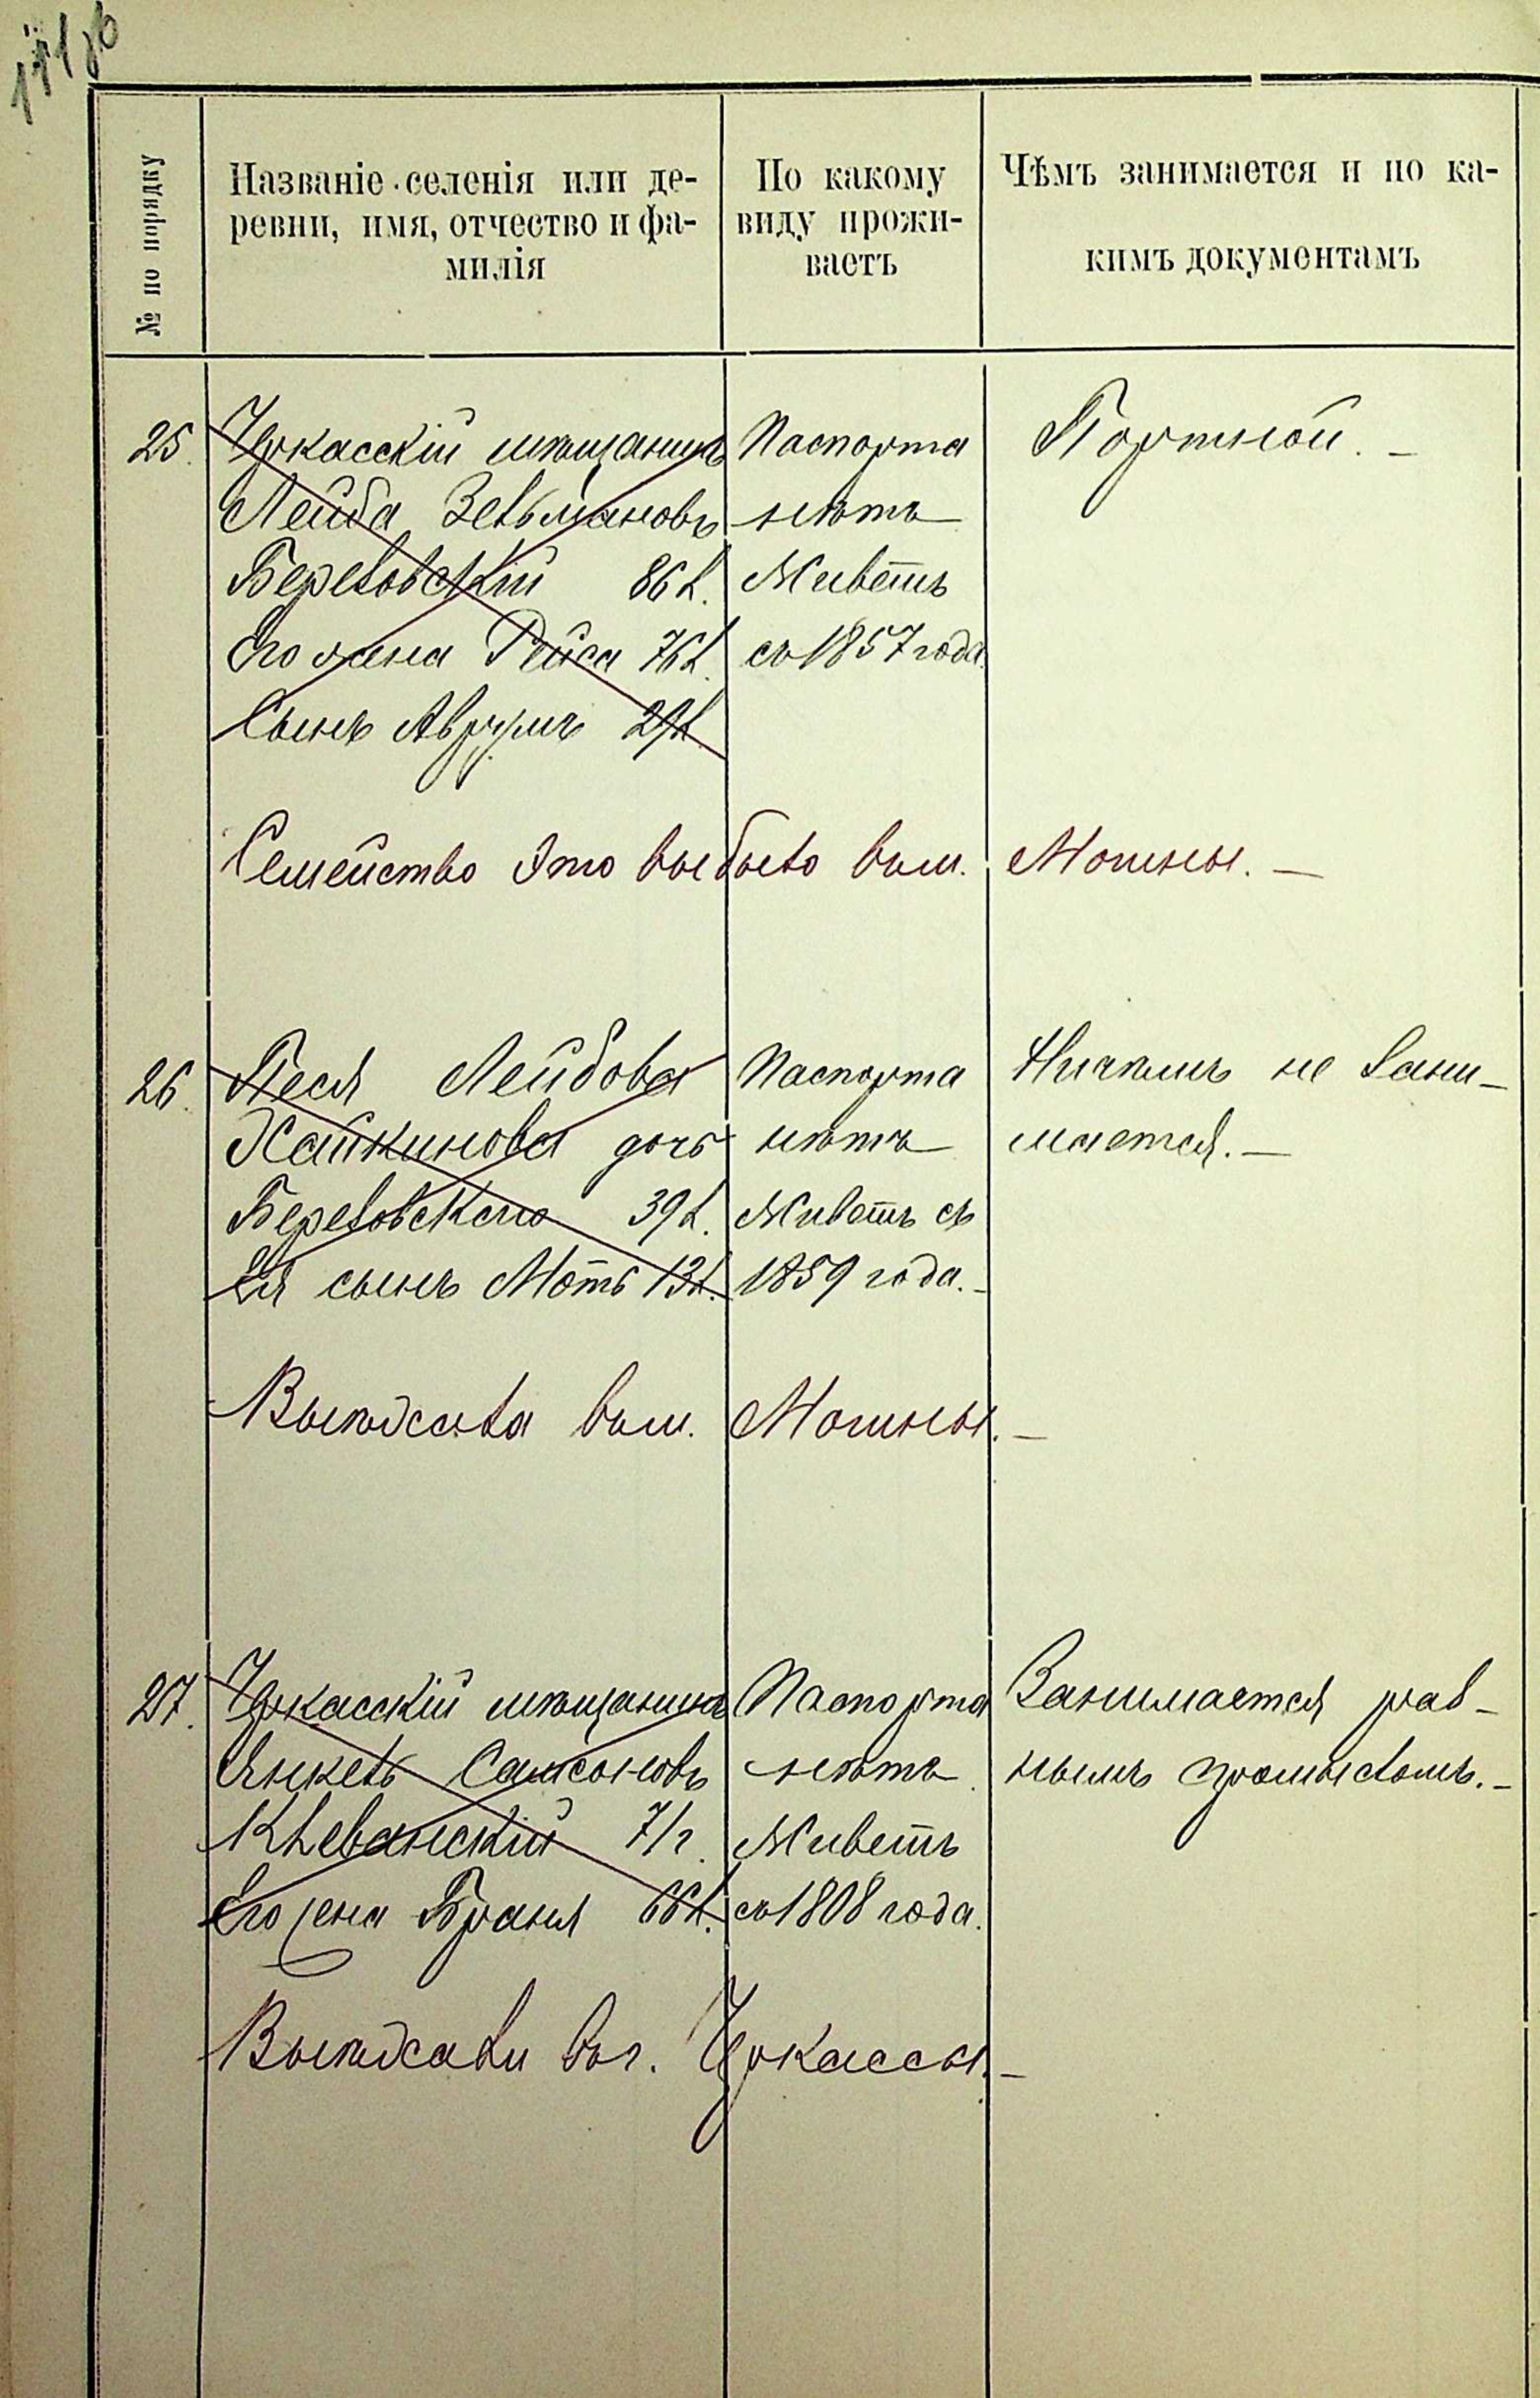 № по порядку
Названіе селенія или де-
ревни, имя, отчество и фа-
милія
По какому
виду прожи-
ваетъ
Чѣмъ занимается и по ка-
кимъ документамъ
25.
Черкасскій мѣщанинъ
Лейба Зельмановъ
Березовскій 86 л.
Его жена Рейса 76 л.
Сынъ Аврумъ 29 л.
Паспорта
нѣтъ
Живетъ
съ 1857 года.
Портной. —
Семейство это выбыло въ м. Мошны. —
26.
Песя Лейбова
Хайкинова дочь
Березовскаго 39 л.
Ея сынъ Моть 13 л.
Паспорта
нѣтъ
Живетъ съ
1859 года. -
Ничѣмъ не зани-
мается. —
Выѣхала въ м. Мошны. —
27.
Черкасскій мѣщанинъ
Янкель Самсоновъ
Клеванскій 71 г.
Его жена Браня 66 л.
Паспорта
нѣтъ
Живетъ
съ 1808 года.
Занимается раз-
нымъ промысломъ. -
Выѣхали въ г. Черкассы. —